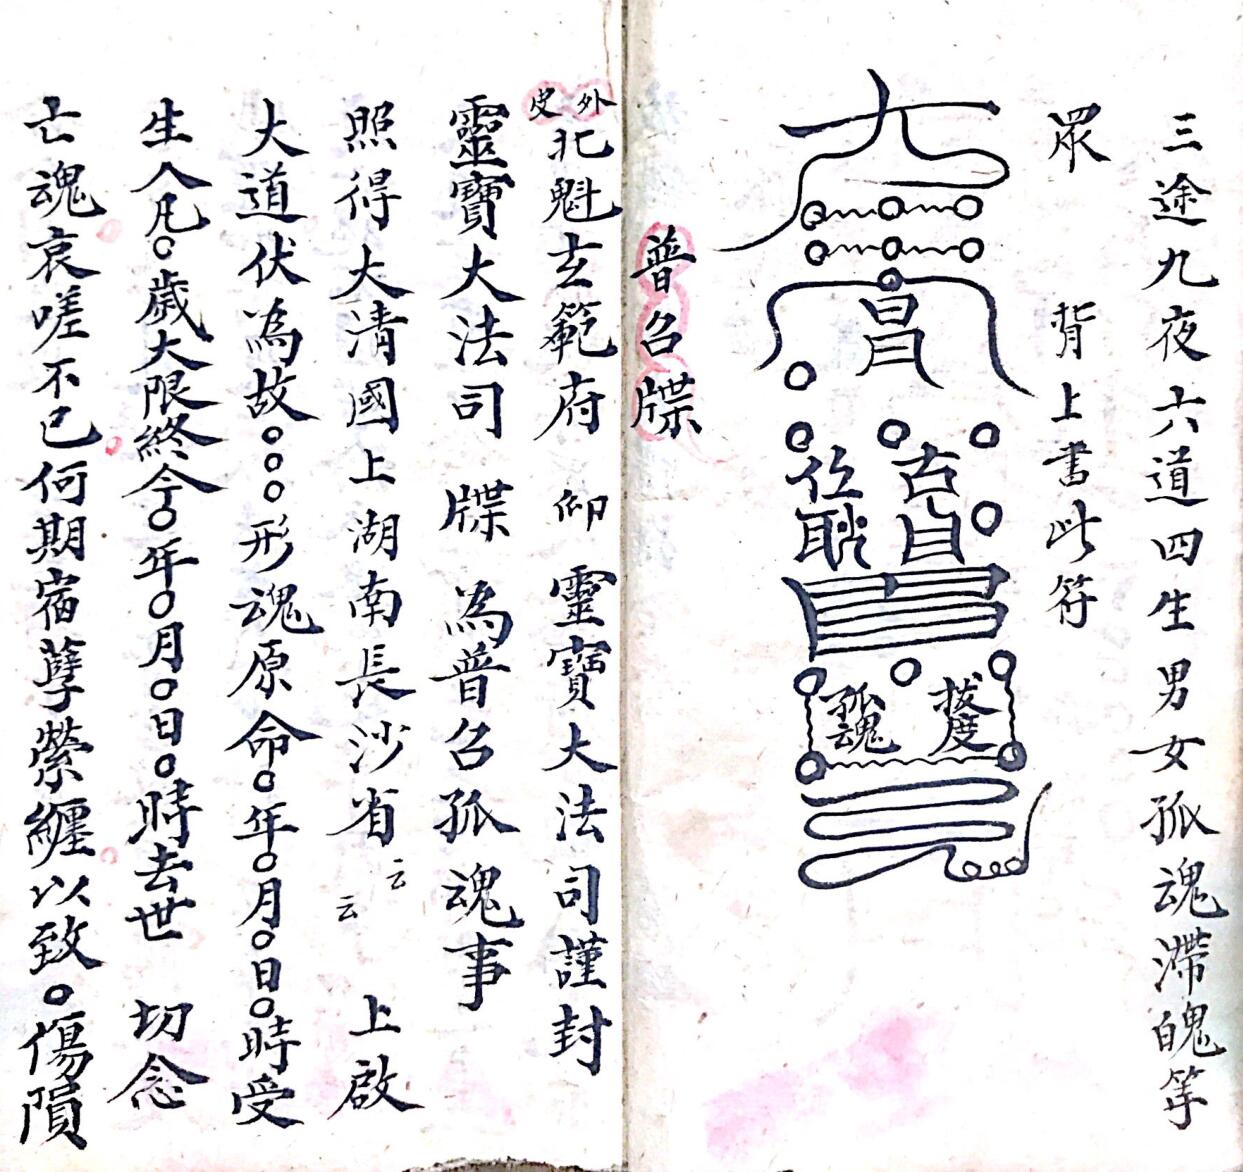 三途九夜六道四生男女孤魂滯魄等
眾　背上書此符
拔度
孤魂
普召牒
外皮
北魁玄範府　仰　靈寶大法司謹封
靈寶大法司　牒　為普召孤魂事
照得大清國上湖南長沙省云云　上啟
大道伏為故○○○形魂原命○年○月○日○時受
生人凡○歲大限終今○年○月○日○時去世　切念
亡魂哀嗟不已何期宿孽縈纏以致○傷隕